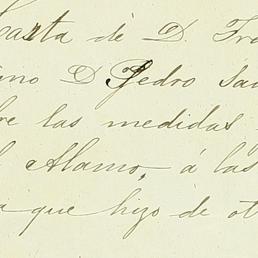 Carta de D. Fra
ino D Pedro Sa
re las medidas
l Alamo, á las
a que hizo de ot